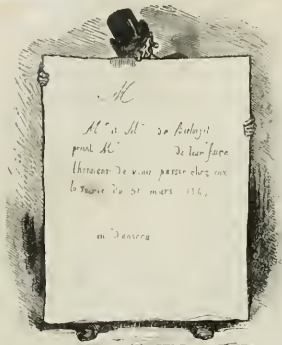 M
M^r et M^e de
prient M^r de leur faire
l'honneur de venir passer chez eux
la soirée du 31 mars 184,
on dansera